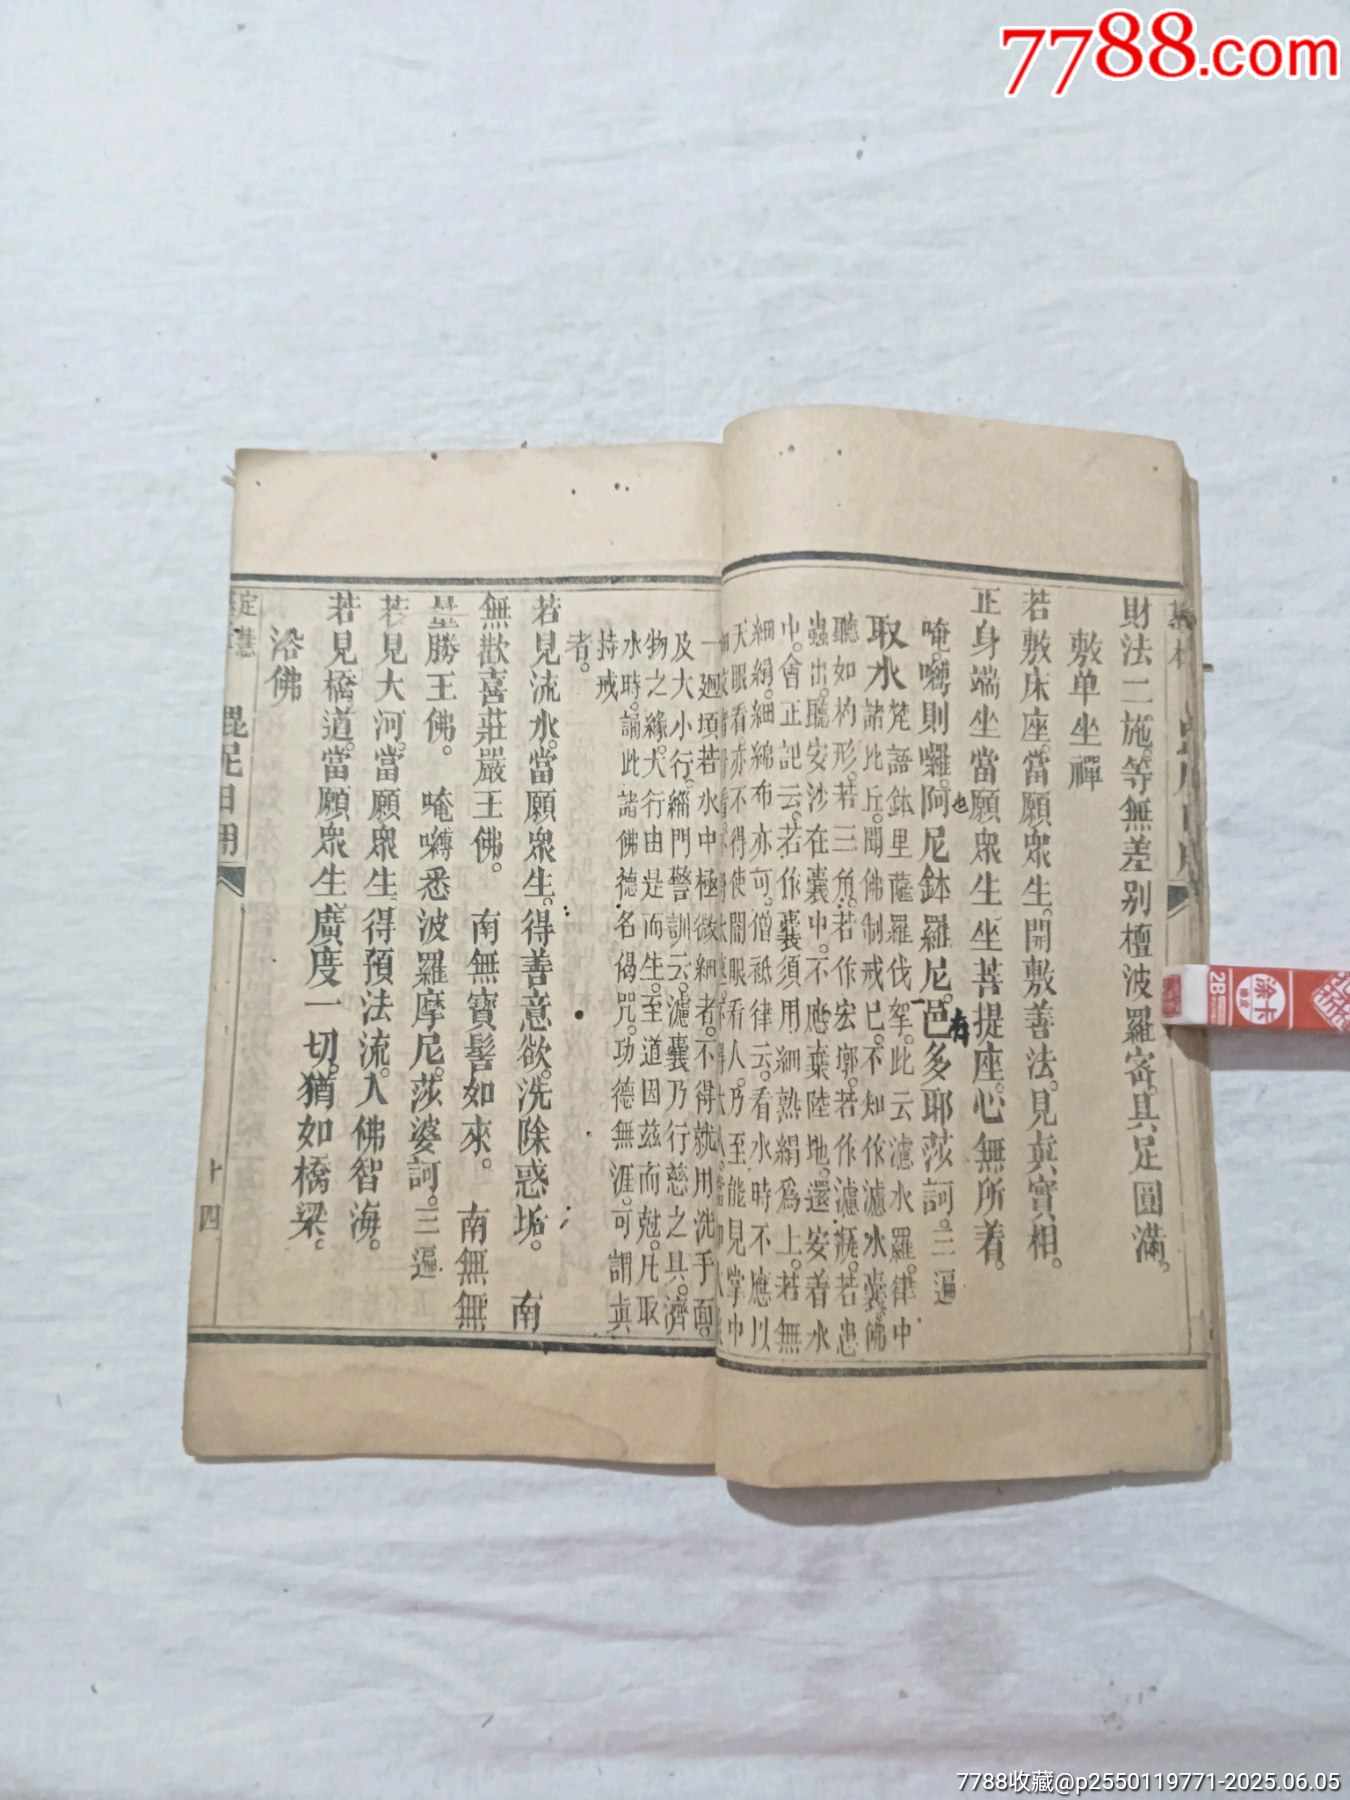 7788.com
財法二施。等無差別。檀波羅宻。具足圓滿。
敷单坐禪
若敷床座。當願眾生。開敷善法。見眞實相。
正身端坐。當願眾生。坐菩提座。心無所着。
唵。嚩則囉。阿尼鉢羅尼。邑多耶莎訶。三遍
也
有
取水
梵語鉢里薩羅伐拏。此云濾水羅。律中
諸比丘。聞佛制戒已。不知作濾水囊。佛
聽如杓形。若三角。若作宏墎。若作濾瓶。若患
蟲出。聽安沙在囊中。不應棄陸地。還安着水
中。會正記云。若作囊須用細熟絹爲上。若無
細絹。細綿布亦可。僧祇律云。看水時不應以
天眼看。亦不得使闇眼看人。乃至能見掌中
一廻頃若水中極微細者。不得就用洗手面。
及大小行。緇門警訓云。濾囊乃行慈之具。濟
物之緣。大行由是而生。至道因茲而尅。凡取
水時。誦此諸佛德名偈咒。功德無涯。可謂眞
持戒
者。
若見流水。當願眾生。得善意欲。洗除惑垢。 南
無歡喜莊嚴王佛。 南無寶髻如來。 南無無
量勝王佛。 唵嚩悉波羅摩尼。莎婆訶。三遍
若見大河。當願眾生。得預法流。入佛智海。
若見橋道。當願眾生。廣度一切。猶如橋梁。
浴佛
定慧
毘尼日用
十四
2B
涂卡
7788收藏@p2550119771-2025.06.05